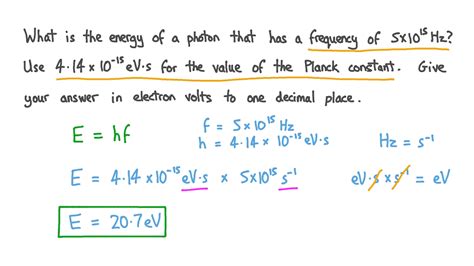 What is the energy of a photon that has a frequency of 5×10¹⁵ Hz?
Use 4·14 × 10⁻¹⁵ eV·s for the value of the Planck constant. Give
your answer in electron volts to one decimal place.
E = hf
f = 5×10¹⁵ Hz
h = 4·14 × 10⁻¹⁵ eV·s
Hz = s⁻¹
E = 4·14 ×10⁻¹⁵ eV·s × 5×10¹⁵ s⁻¹
eV·s × s⁻¹ = eV
E = 20·7 eV